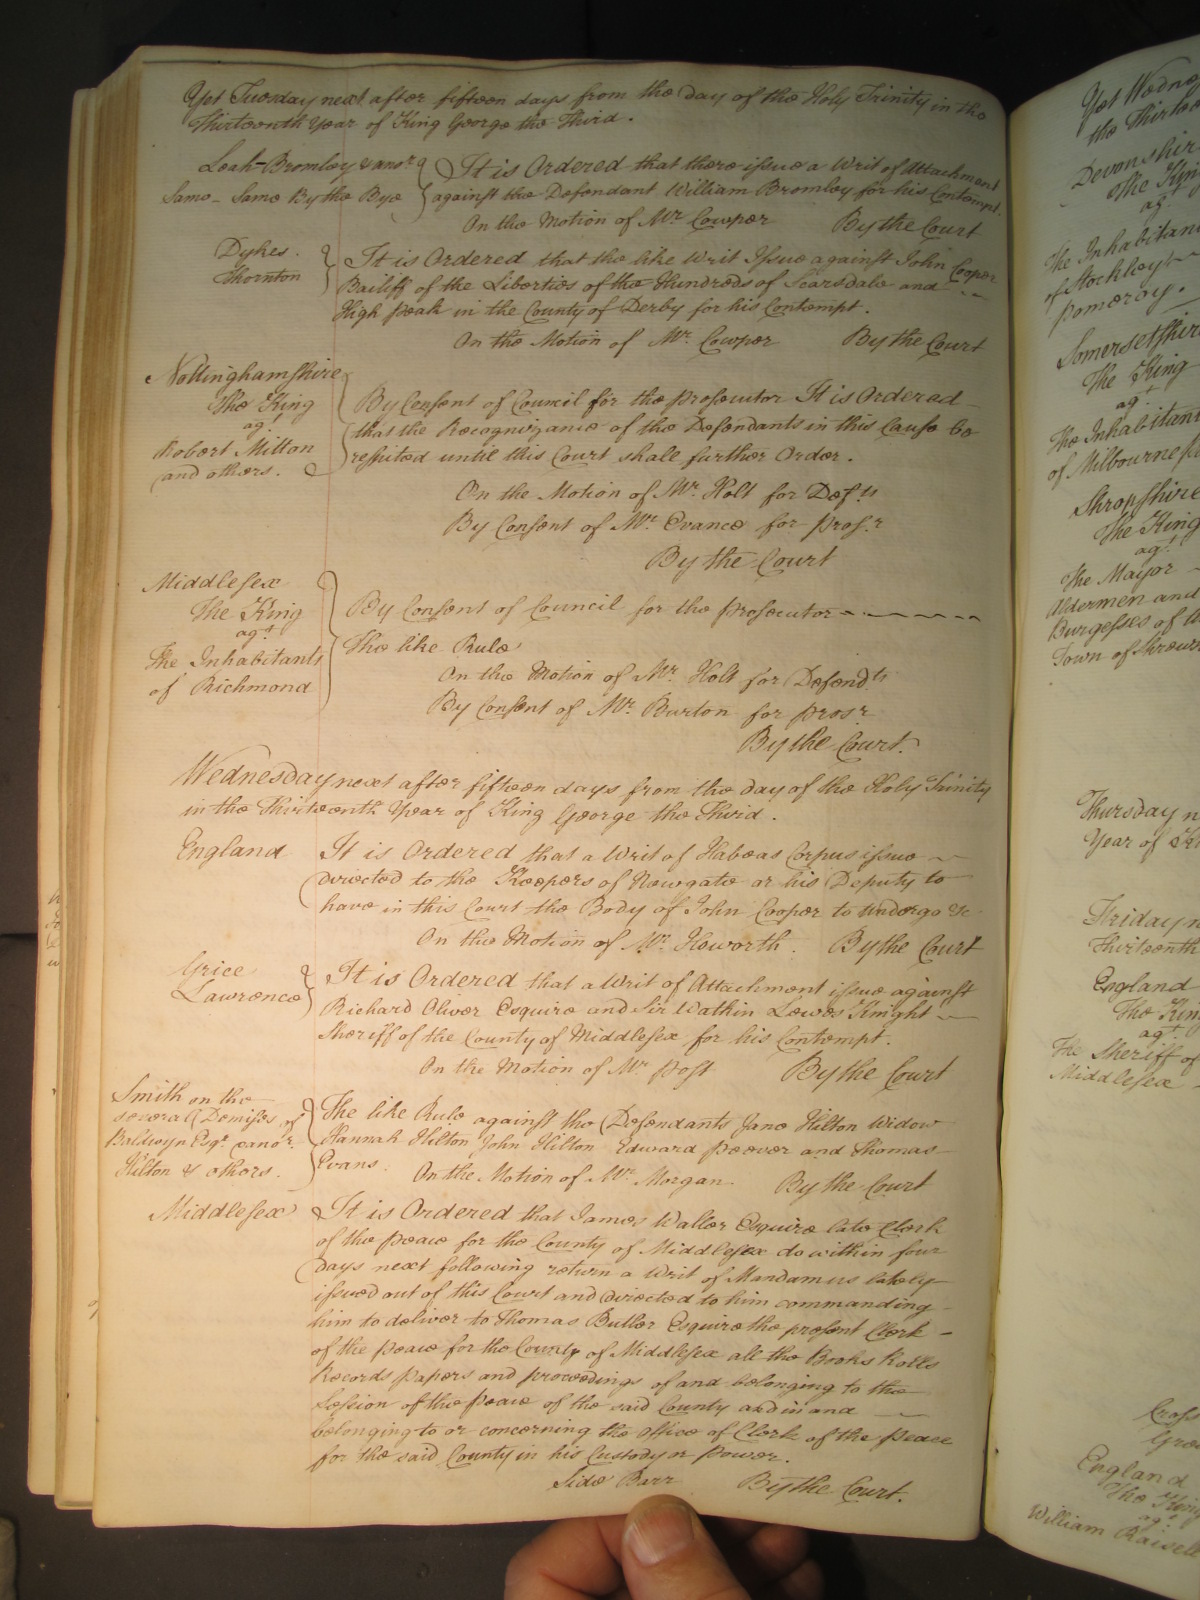 Yet Tuesday next after fifteen days from the day of the Holy Trinity in the
Thirteenth Year of King George the Third.
Leah Bromley & anor
Same - Same By the Bye
It is Ordered that there issue a Writ of Attachment
against the Defendant William Bromley for his Contempt.
On the Motion of Mr. Cowper By the Court
Dykes.
Thornton
It is Ordered that the like Writ Issue against John Cooper
Bailiff of the Liberties of the Hundreds of Scarsdale and
High Peak in the County of Derby for his Contempt.
On the Motion of Mr. Cowper By the Court
Nottinghamshire
The King
agt.
Robert Milton
and others.
By Consent of Council for the Prosecutor It is Ordered
that the Recognizance of the Defendants in this Cause be
respited until this Court shall further Order.
On the Motion of Mr. Holt for Defts
By Consent of Mr. Evance for Prosr
By the Court
Middlesex
The King
agt
The Inhabitants
of Richmond
By Consent of Council for the Prosecutor
The like Rule
On the Motion of Mr. Holt for Defendts
By Consent of Mr. Burton for Prosr
By the Court.
Wednesday next after fifteen days from the day of the Holy Trinity
in the Thirteenth Year of King George the Third.
England
It is Ordered that a Writ of Habeas Corpus issue
directed to the Keepers of Newgate or his Deputy to
have in this Court the Body of John Cooper to undergo &c
On the Motion of Mr. Howorth. By the Court
Grice
Lawrence
It is Ordered that a Writ of Attachment issue against
Richard Oliver Esquire and Sir Watkin Lewes Knight
Sheriff of the County of Middlesex for his Contempt.
On the Motion of Mr. Post By the Court
Smith on the
several Demises of
Baldwyn Esqr. & anor.
Hilton & others.
The like Rule against the Defendants Jane Hilton Widow
Hannah Hilton John Hilton Edward Peever and Thomas
Evans.
On the Motion of Mr. Morgan By the Court
Middlesex
It is Ordered that James Waller Esquire late Clerk
of the peace for the County of Middlesex do within four
days next following return a Writ of Mandamus lately
issued out of this Court and directed to him commanding
him to deliver to Thomas Butler Esquire the present Clerk
of the peace for the County of Middlesex all the Books Rolls
Records Papers and proceedings of and belonging to the
Session of the peace of the said County and in and
belonging to or concerning the office of Clerk of the peace
for the said County in his Custody or power.
Side Barr By the Court.
Yet Wedne
the Thirtee
Devonshir
The Kin
agt
The Inhabitan
of Stockley
Pomeroy.
Somersetshir
The King
agt
The Inhabitant
of Milbourne
Shropshire
The King
agt
The Mayor
Aldermen and
Burgesses of
Town of Shrews
Thursday n
Year of
Friday n
Thirteenth
England
The Kin
agt
The Sheriff of
Middlesex
England
The King
agt
William